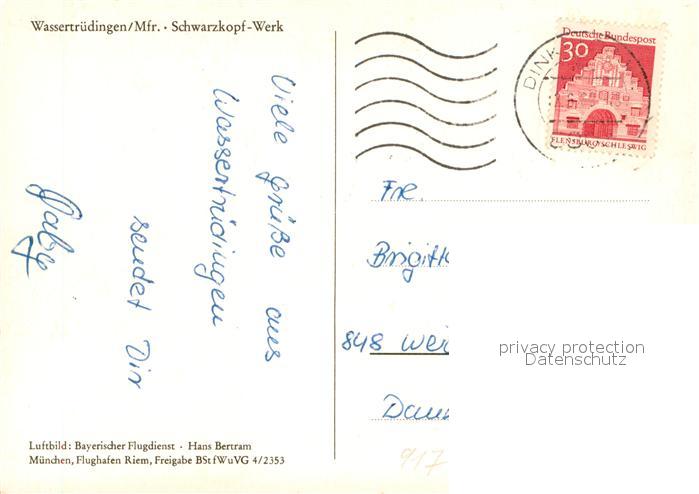 Wassertrüdingen/Mfr. · Schwarzkopf-Werk
Viele Grüße aus
Wassertrüdingen
sendet Dir
Deutsche Bundespost
30
FLENSBURG/SCHLESWIG
DINK
Frl.
Brigitt
848 Wei
privacy protection
Datenschutz
Luftbild: Bayerischer Flugdienst · Hans Bertram
München, Flughafen Riem, Freigabe BStfWuVG 4/2353
917